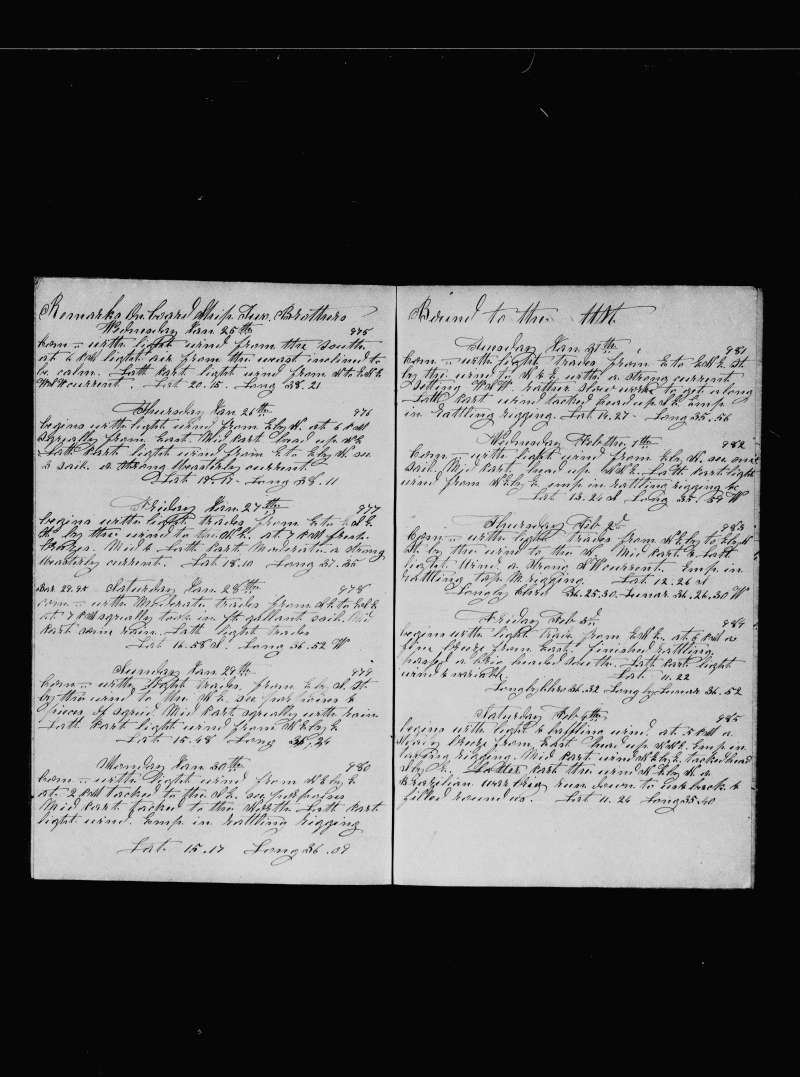 Remarks On board Ship Two Brothers
Wednesday Jan 25th 975
Com - with light wind from the South
at 6 PM light air from the west inclined to
be calm. Latt Part light wind from to
current. Lat 20.15. Long 38.21
Thursday Jan 26th 976
begins with light wind from E by N. at 6 PM
squally from East. Mid Part head up
Latt Part light wind from E to E by N. see
3 sail. a strong Westerly current
Lat 19.17. Long 38.11
Friday Jan 27th 977
begins with light trades from E to
St. by the wind to the at 7 PM fresh
Mid & Latt Part Moderate. a strong
Westerly current. Lat 18.10 Long 37.35
Bar 29.90 Saturday Jan 28th 978
com - with Moderate trades from
at 7 PM squally took in ft gallant sail. Mid
Part some rain. Latt light trades
Lat 16.58 S. Long 36.52 W
Sunday Jan 29th 979
Com - with light trades from E by St.
by the wind to the see porpoises &
pieces of squid. Mid Part squally with rain
Latt Part light wind from
Lat 15.48 Long 36.24
Monday Jan 30th 980
Com - with light wind from
at 2 PM tacked to the see porpoises
Mid Part tacked to the North Latt Part
light wind. Emp in rattling rigging
Lat. 15.17 Long 36.09
Bound to the
Tuesday Jan 31th 981
Com - with light trades from E to St.
by the wind to with a strong current
setting rather slow work to get along
Latt Part wind tacked head up Emp
in rattling rigging. Lat 14.27 - Long 35.56
Wednesday Feb the 1th 982
Com - with light wind from E by N. see one
sail. Mid Part head up Latt Part light
wind from emp in rattling rigging &c
Lat 13.24 S Long 35.59 W
Thursday Feb 2d 983
Com - with light trades from to
St. by the wind to the Mid Part & Latt
light wind. a strong SW current. Emp in
rattling rigging. Lat 12.26 S
Long by Chro 36.25.30. Lunar 36.26.30 W
Friday Feb 3d 984
begins with light trades from at 5 PM a
fine breeze from East. finished rattling
passed a Brig headed South. Latt Part light
wind & variable Lat 11.22
Long by chro 36.52 Long by Lunar 36.52
Saturday Feb 4th 985
begins with light & baffling wind. at 5 PM a
breeze from East head up Emp in
rigging. Mid Part wind tacked head
Latter Part the wind a
Brazilian war brig run down to us back &
filled round us. Lat 11.24 Long 35.40